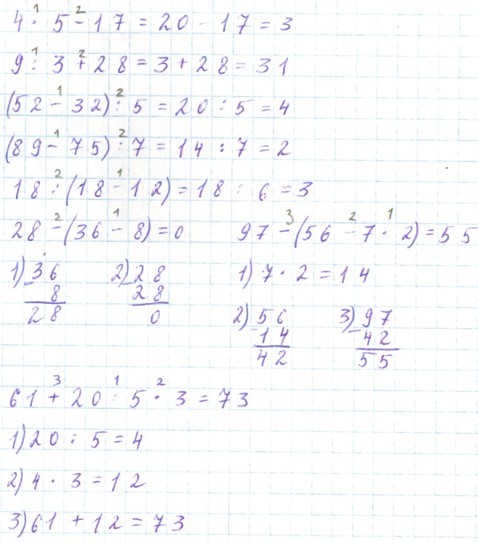 4 · 5 - 17 = 20 - 17 = 3
9 : 3 + 28 = 3 + 28 = 31
(52 - 32) : 5 = 20 : 5 = 4
(89 - 75) : 7 = 14 : 7 = 2
18 : (18 - 12) = 18 : 6 = 3
28 - (36 - 8) = 0
1) 36
- 8
28
2) 28
- 28
0
97 - (56 - 7 · 2) = 55
1) 7 · 2 = 14
2) 56
- 14
42
3) 97
- 42
55
61 + 20 : 5 · 3 = 73
1) 20 : 5 = 4
2) 4 · 3 = 12
3) 61 + 12 = 73